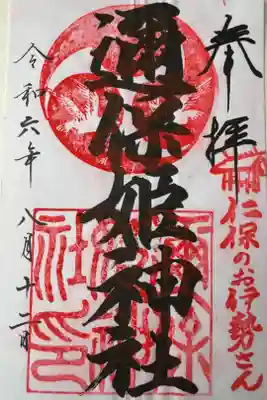 奉拝
仁保のお伊勢さん
邇保姫神社
令和六年
八月十二日